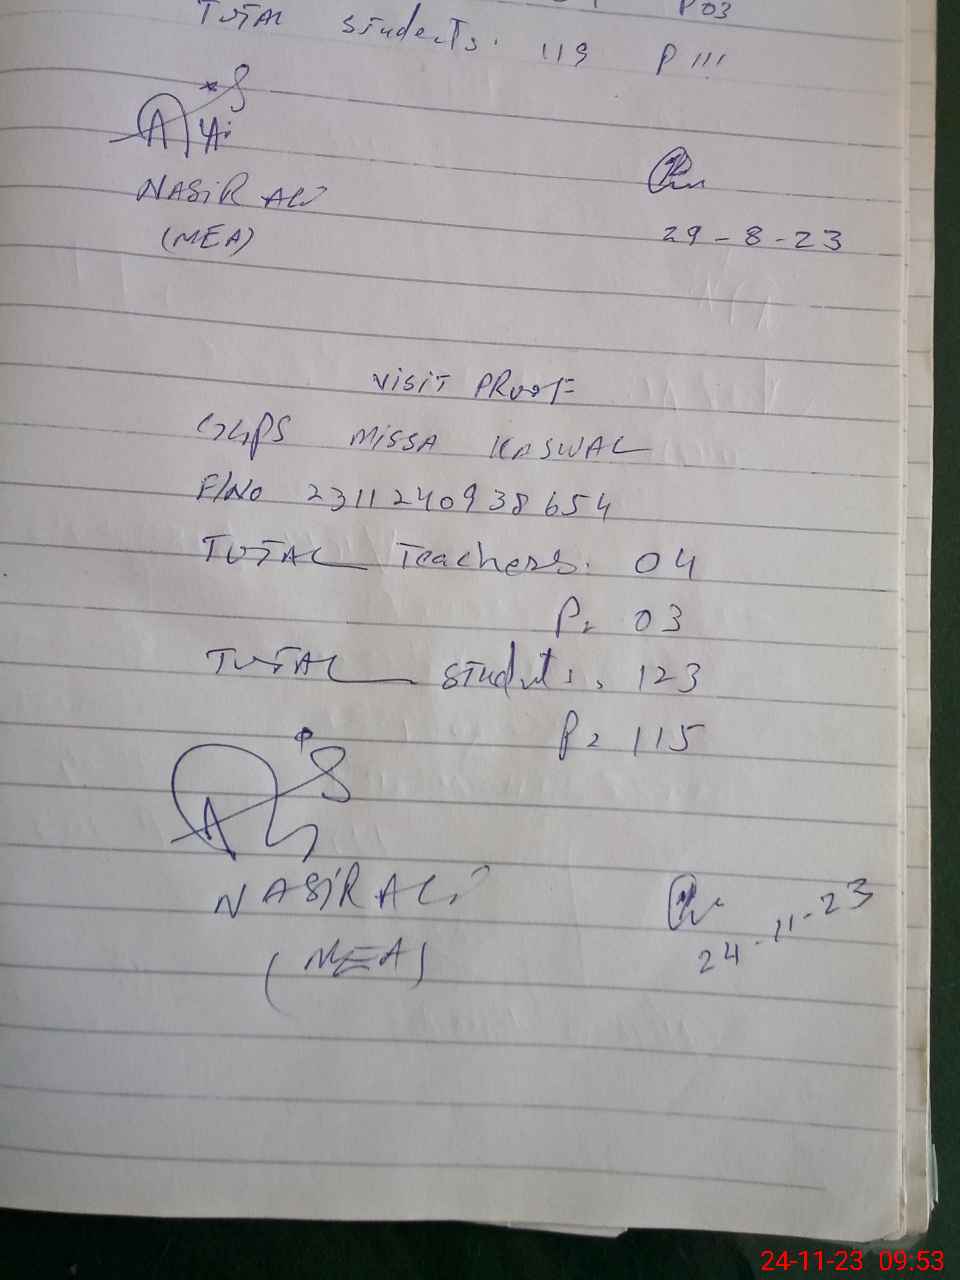 P 03
TOTAL Students. 119 P 111
NASIR ALI
(MEA)
29-8-23
VISIT PROOF
GGPS MISSA KASWAL
F/No 2311240938654
TOTAL Teachers. 04
P= 03
TOTAL Students. 123
P= 115
NASIR ALI
(MEA)
24-11-23
24-11-23 09:53